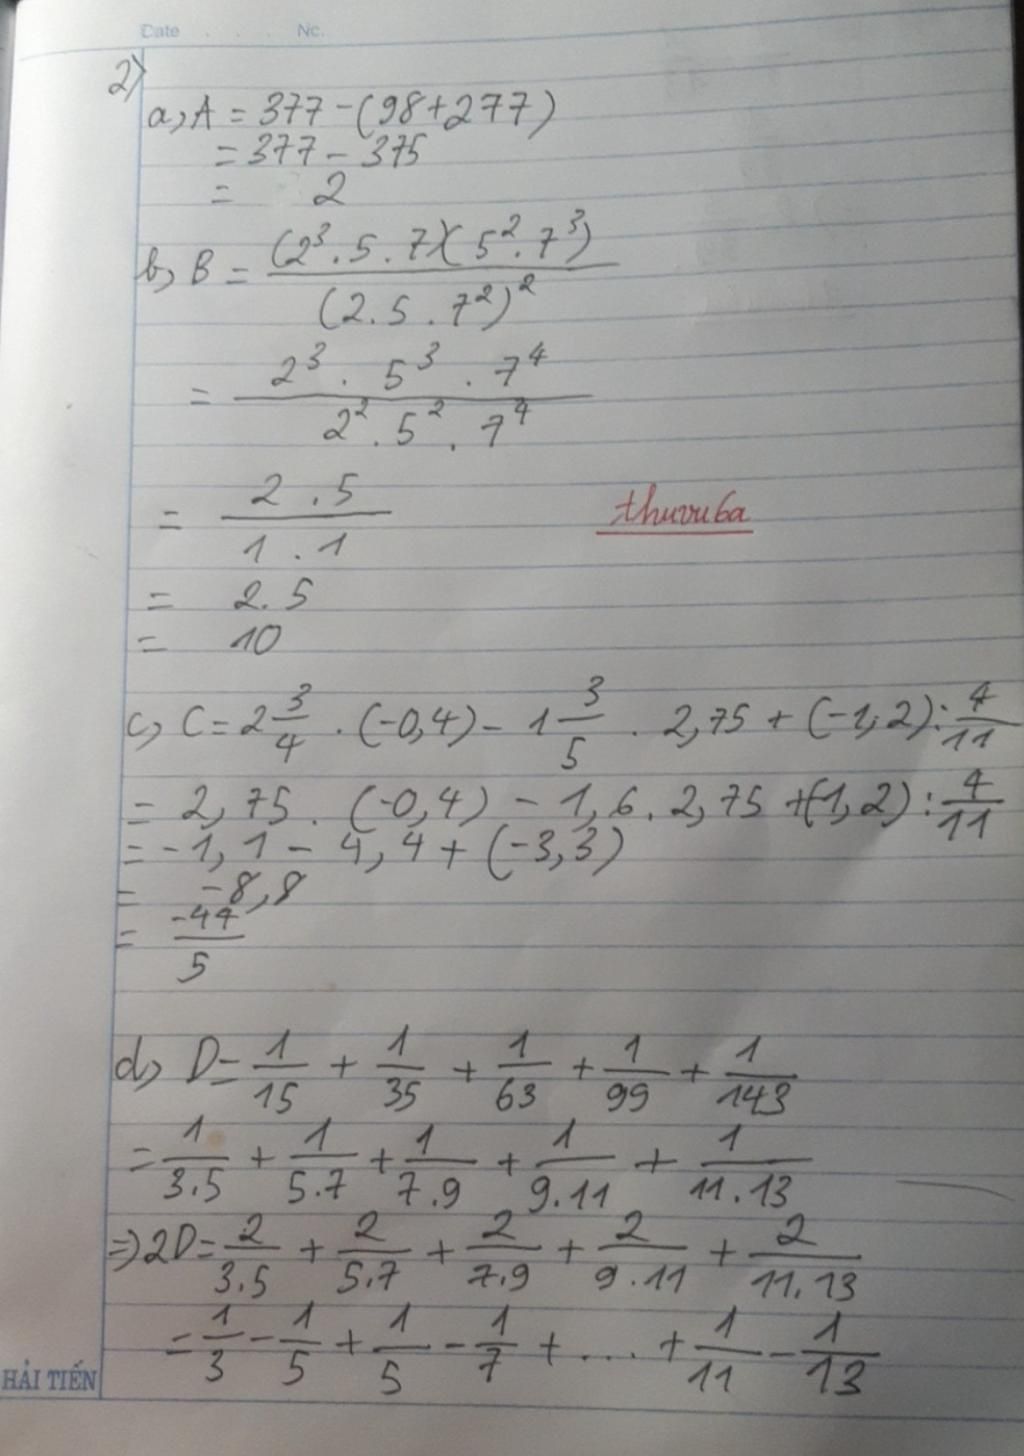 Date . . . . No.
2)
a, A = 377 - (98 + 277)
= 377 - 375
= 2
b, B = \frac{(2^3 . 5 . 7)(5^2 . 7^3)}{(2 . 5 . 7^2)^2}
= \frac{2^3 . 5^3 . 7^4}{2^2 . 5^2 . 7^4}
= \frac{2 . 5}{1 . 1}
thuvuba
= 2.5
= 10
c, C = 2\frac{3}{4} . (-0,4) - 1\frac{3}{5} . 2,75 + (-1,2) : \frac{4}{11}
= 2,75 . (-0,4) - 1,6 . 2,75 + (-1,2) : \frac{4}{11}
= -1,1 - 4,4 + (-3,3)
= -8,8
= \frac{-44}{5}
d, D = \frac{1}{15} + \frac{1}{35} + \frac{1}{63} + \frac{1}{99} + \frac{1}{143}
= \frac{1}{3.5} + \frac{1}{5.7} + \frac{1}{7.9} + \frac{1}{9.11} + \frac{1}{11.13}
=> 2D = \frac{2}{3.5} + \frac{2}{5.7} + \frac{2}{7.9} + \frac{2}{9.11} + \frac{2}{11.13}
= \frac{1}{3} - \frac{1}{5} + \frac{1}{5} - \frac{1}{7} + .... + \frac{1}{11} - \frac{1}{13}
HẢI TIẾN